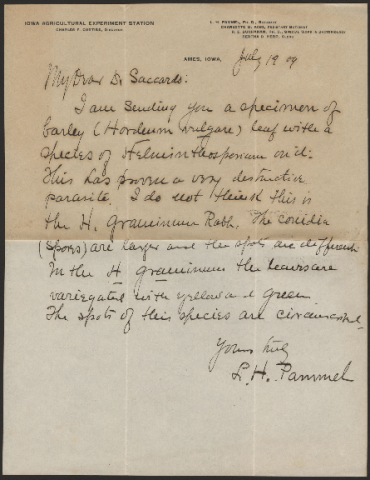 IOWA AGRICULTURAL EXPERIMENT STATION
CHARLES F. CURTISS, Director
L. H. PAMMEL, Ph. D., Botanist
CHARLOTTE M. KING, Assistant Botanist
AMES, IOWA,
July 19 09
My Dear Dr Saccardo:
I am sending you a specimen of
barley (Hordeum vulgare) leaf with a
species of Helminthosporium on it.
This has proven a very destructive
parasite. I do not think this is
the H. gramineum Rabh. The conidia
(spores) are larger and the spots are different
In the H gramineum the leaves are
variegated with yellow and green.
The spots of this species are circumscribed.
Yours truly
L. H. Pammel